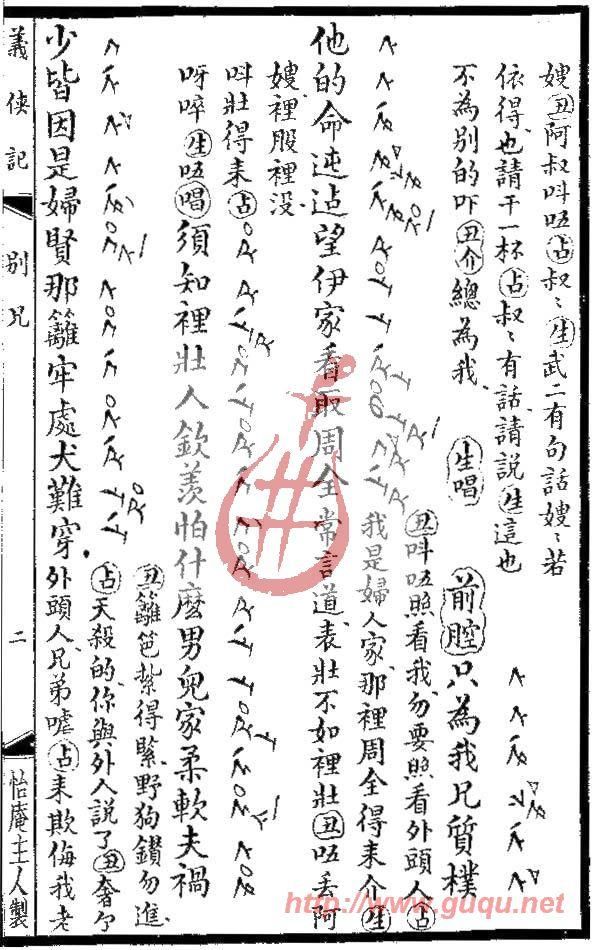 嫂丑阿叔呌唔占叔〻生武二有句話嫂〻若
依得也請干一杯占叔〻有話請說生這也
不為别的吓丑介總為我生唱前腔只為我兄質樸
丑呌唔照看我勿要照看外頭人占
我是婦人家那裡周全得来介生
他的命迍邅望伊家看取周全常言道表壯不如裡壯丑唔丢阿
嫂裡股裡没
呌壯得来占
呀啐生唔唱須知裡壯人欽羨怕什麽男兒家柔軟夫禍
丑籬笆紮得緊野狗鑽勿進
占天殺的你與外人說了丑奢个
少皆因是婦賢那籬牢處犬難穿外頭人兄弟嘘占来欺侮我老
義俠記
别兄
二
怡庵主人製
http://www.guqu.net